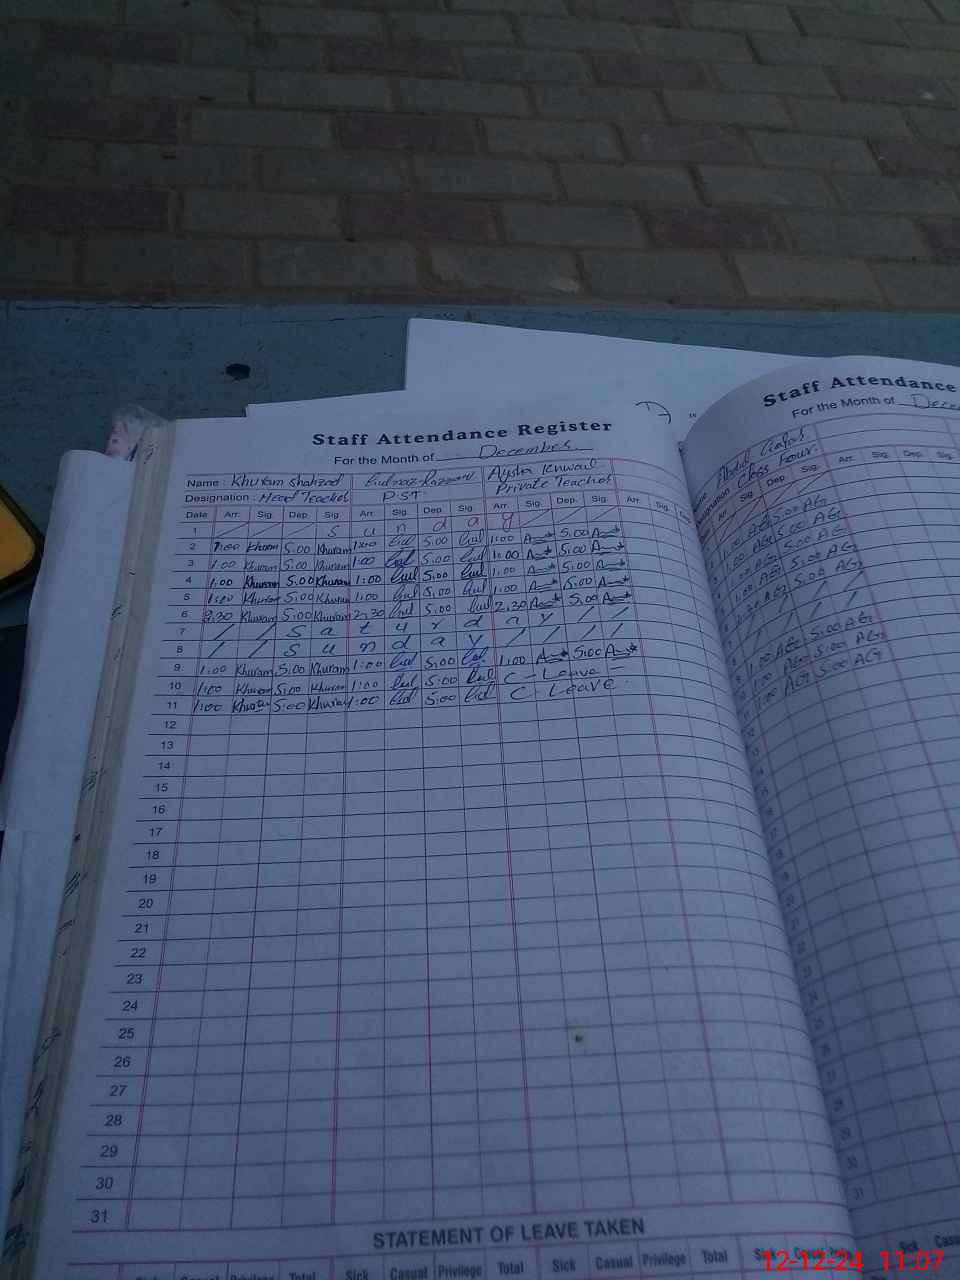 Staff Attendance Register
For the Month of December.
Name : Khuram Shahzad Aysha Kenwal
Designation : Head Teacher P.ST. Private Teacher
Date Arr. Sig. Dep. Sig. Arr. Sig. Dep. Sig. Arr. Sig. Dep. Sig. Arr. Sig.
1 S u n d a y
2 1:00 Khuram 5:00 Khuram 1:00 Gul 5:00 Gul 1:00 5:00
3 1:00 Khuram 5:00 Khuram 1:00 Gul 5:00 Gul 1:00 5:00
4 1:00 Khuram 5:00 Khuram 1:00 Gul 5:00 Gul 1:00 5:00
5 1:00 Khuram 5:00 Khuram 1:00 Gul 5:00 Gul 1:00 5:00
6 2:30 Khuram 5:00 Khuram 2:30 Gul 5:00 Gul 2:30 5:00
7 / / S a t u r d a y / / /
8 / / S u n d a y / / / /
9 1:00 Khuram 5:00 Khuram 1:00 Gul 5:00 Gul 1:00 5:00
10 1:00 Khuram 5:00 Khuram 1:00 Gul 5:00 Gul C - Leave -
11 1:00 Khuram 5:00 Khuram 1:00 Gul 5:00 Gul C - Leave -
12
13
14
15
16
17
18
19
20
21
22
23
24
25
26
27
28
29
30
31
STATEMENT OF LEAVE TAKEN
Sick Casual Privilege Total Sick Casual Privilege Total Sick Casual Privilege Total
Staff Attendance
For the Month of
Class Four.
Arr. Sig. Dep. Sig. Arr. Sig. Dep. Sig.
1:00 AG 5:00 AG
1:00 AG 5:00 AG
1:00 AG 5:00 AG
1:00 AG 5:00 AG
2:30 AG 5:00 AG
1:00 AG 5:00 AG
1:00 AG 5:00 AG
1:00 AG 5:00 AG
Sick
12-12-24 11:07